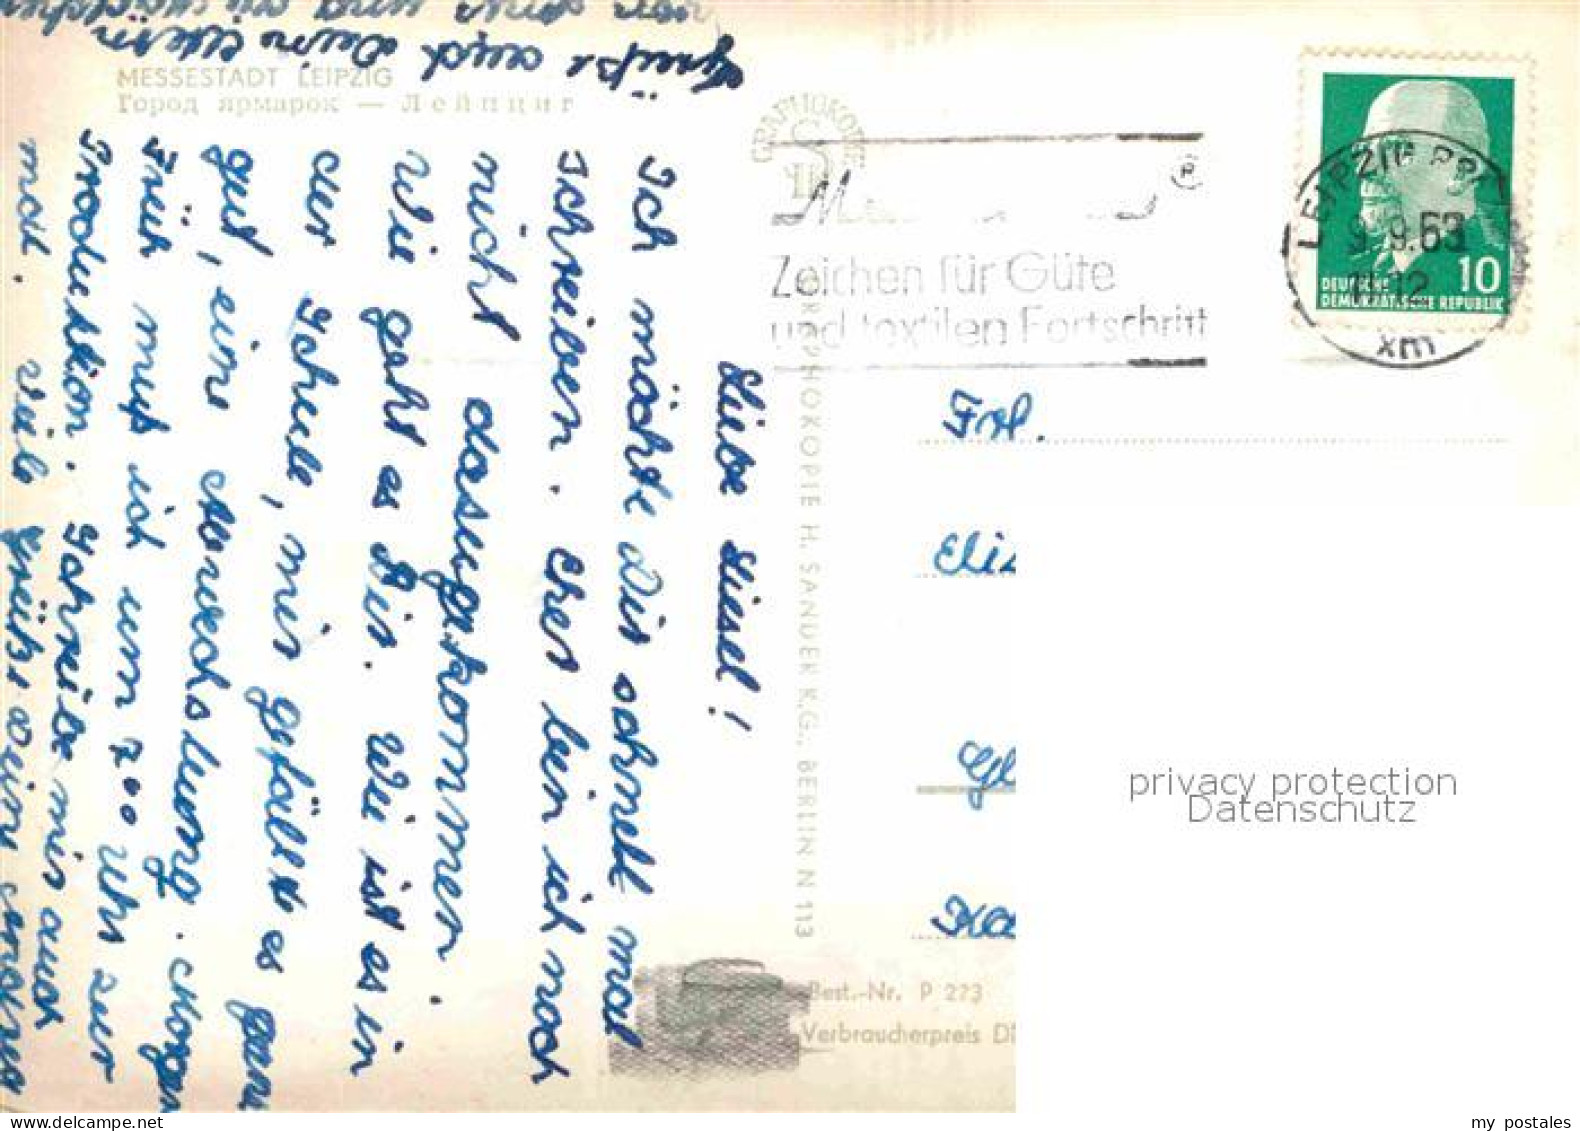 MESSESTADT LEIPZIG
Город ярмарок — Лейпциг
Liebe Liesel!
Ich möchte Dir schnell mal
schreiben. Eher bin ich noch
nicht dazugekommen.
Wie geht es Dir. Wie ist es in
der Schule, mir gefällt es ganz
gut, eine Abwechslung. Morgen
Früh muß ich um 7⁰⁰ Uhr zur
Produktion. Schreibe mir auch
mal. Viele Grüße Deine
Grüße auch Deine Eltern
von und
GRAPHOKOPIE
GRAPHOKOPIE H. SANDER K.G., BERLIN N 113
®
Zeichen für Güte
und textilen Fortschritt
LEIPZIG
9.9.63
12
10
DEUTSCHE
DEMOKRATISCHE REPUBLIK
Frl.
Eli
Gl
Ka
privacy protection
Datenschutz
Best.-Nr. P 273
Verbraucherpreis
my postales